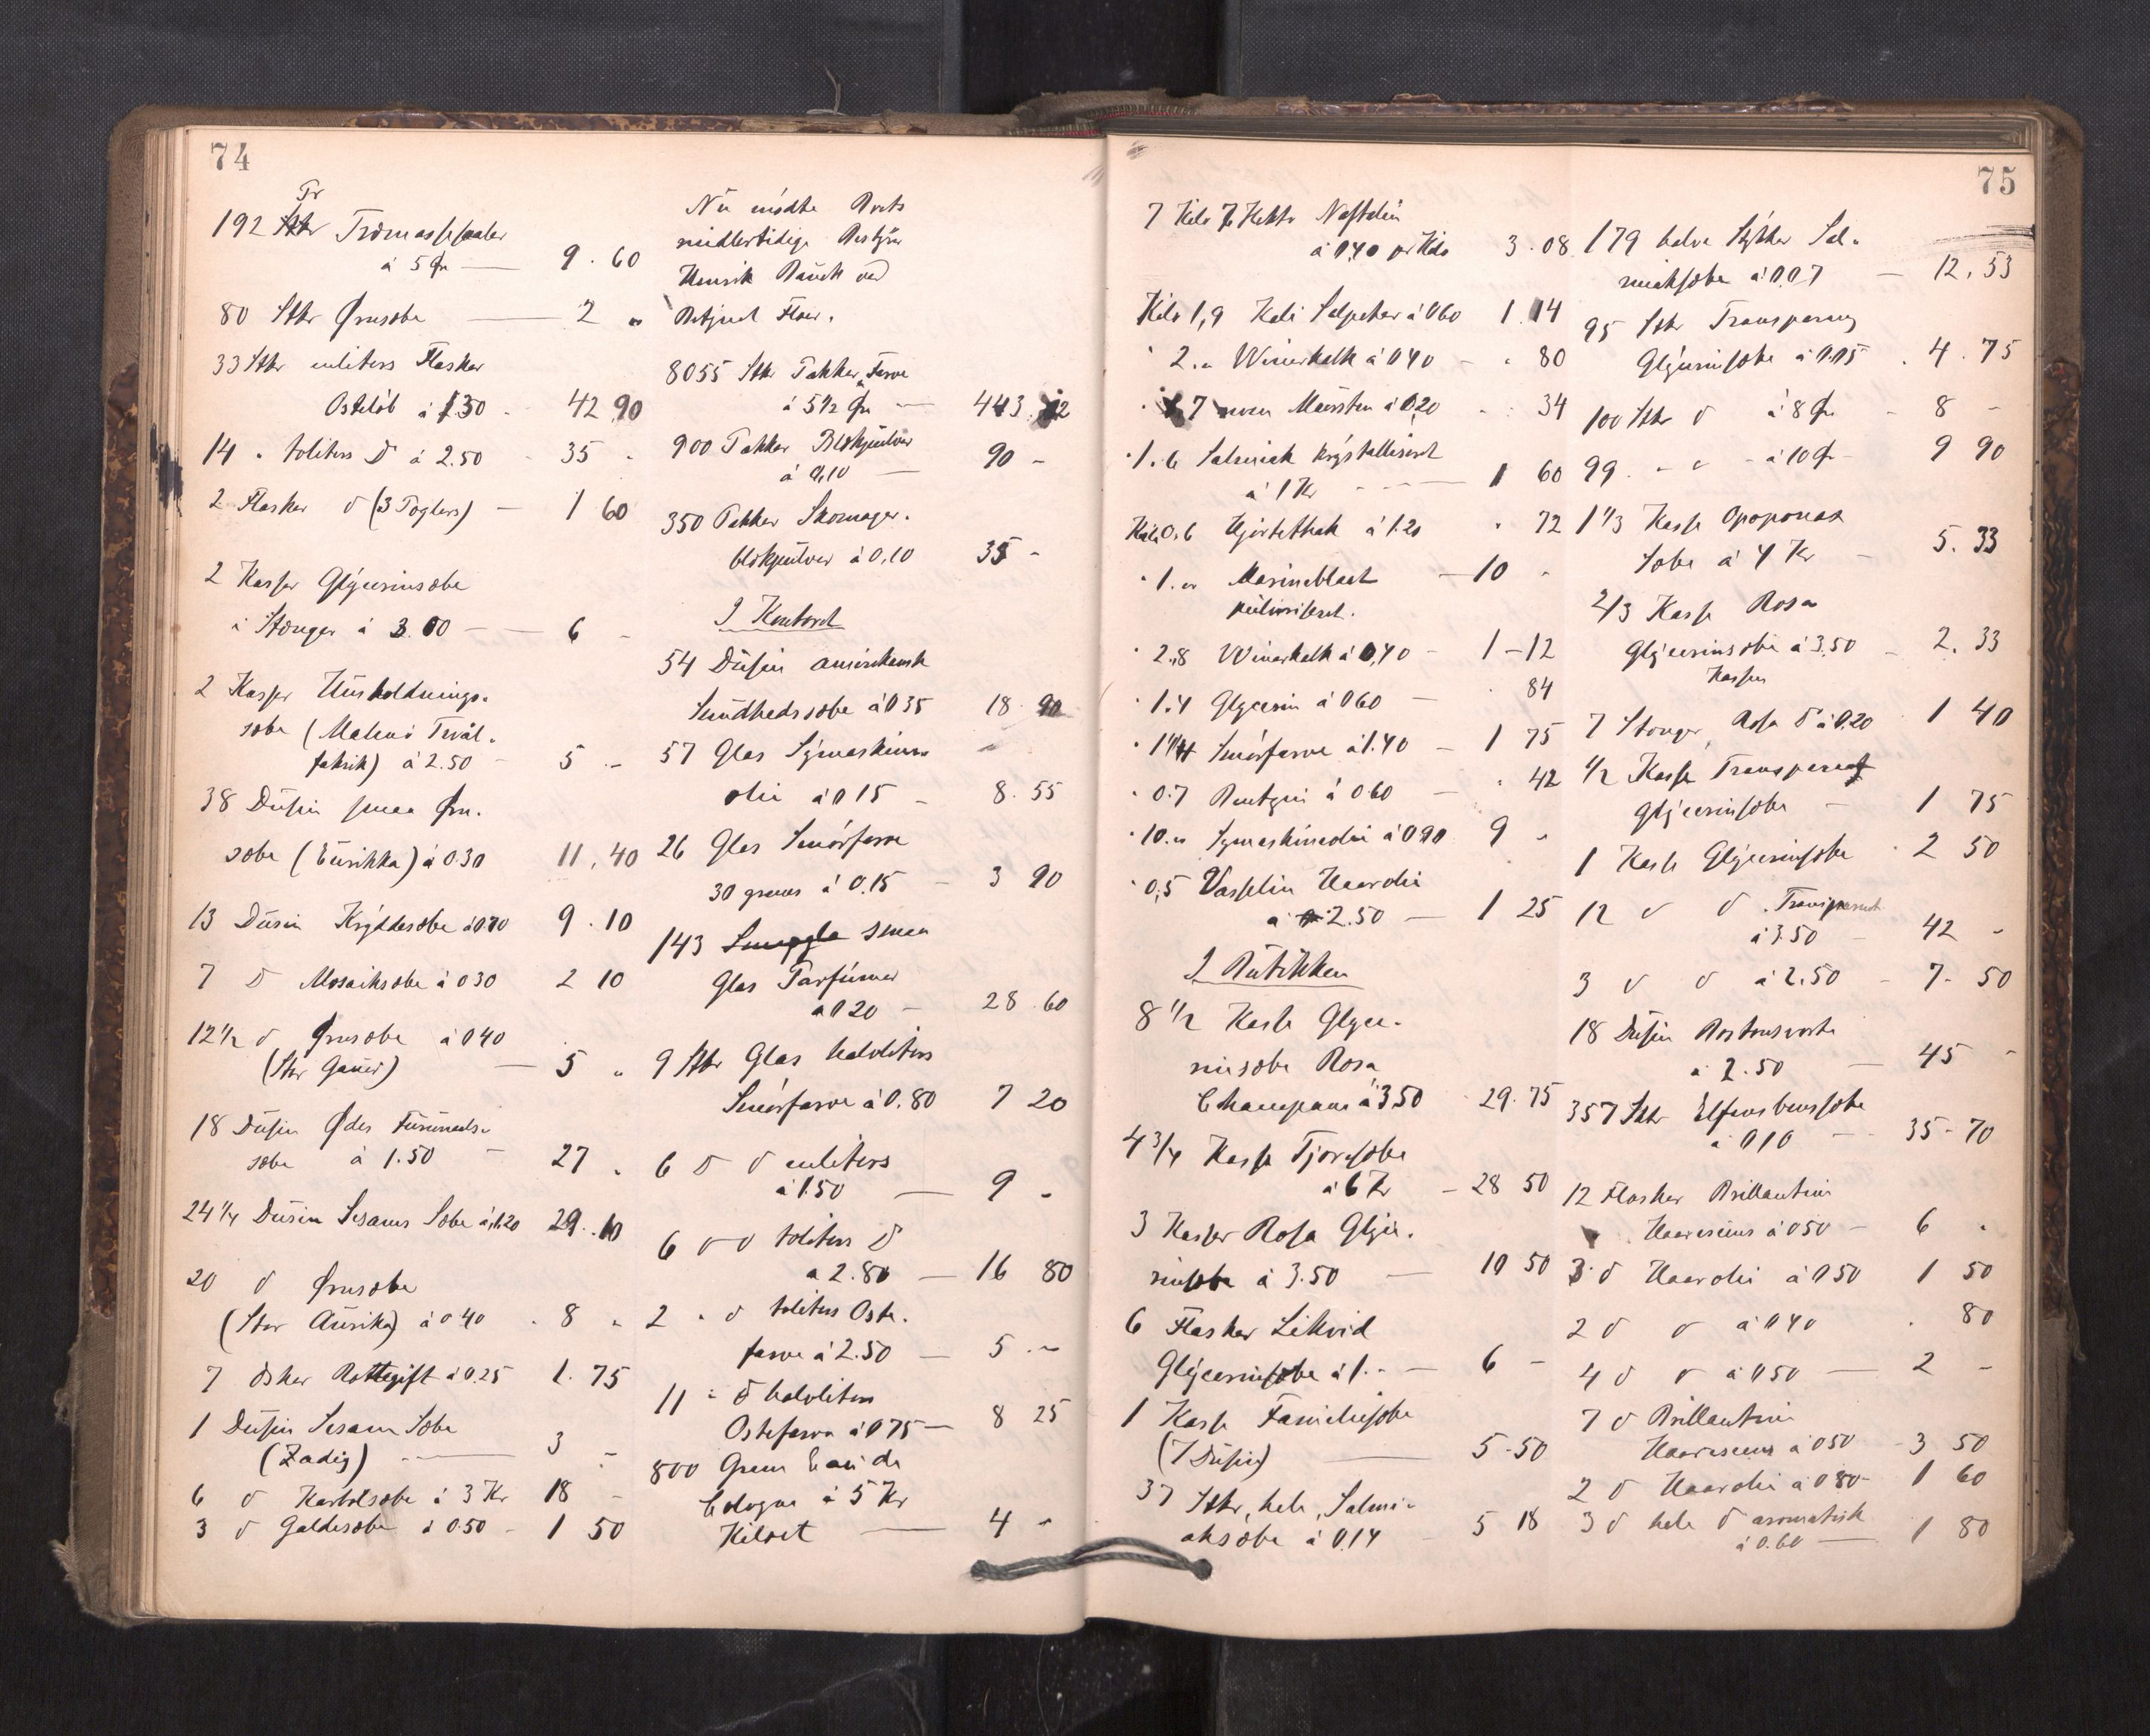 74
Pr
192 Stkr Træmassesaaler
à 5 Ør — 9.60
80 Stkr Ørnsæbe — 2 "
33 Stkr enliters Flasker
Osteløb à 1.30 - 42 90
14 " toliters D à 2.50 - 35 -
2 Flasker d (3 Poglers) — 1 60
2 Kasser Glycerinsæbe
i Stænger à 3.00 — 6 -
2 Kasser Husholdnings-
sæbe (Malmö Tvål-
fabrik) à 2.50 - 5 . -
38 Dusin smaa Ørn-
sæbe (Eurikka) à 0.30 11,40
13 Dusin Kryddesæbe à 0.70 9.10
7 D Mosaiksæbe à 0 30 2 10
12 1/2 d Ørnsæbe à 0 40
(Stor ) — 5 "
18 Dusin Øder
sæbe à 1.50 - 27 "
24 1/4 Dusin Sesams Sæbe à 1.20 29.10
20 d Ørnsæbe
(Stor Aurika) à 0 40 - 8 "
7 Æsker Rottegift à 0.25 1.75
1 Dusin Sesam Sæbe
(Zadig) — 3 -
6 d Karbolsæbe à 3 Kr 18 -
3 d Galdesæbe à 0.50 - 1 50
Nu mødte Boets
midlertidige Bestyrer
Henrik Bauck ved
Betjent Floer.
8055 Stkr Pakker Farve
à 5 1/2 Ør — 443.
900 Pakker Blækpulver
à 0,10 — 90 -
350 Pakker Skomager-
blækpulver à 0,10 35 -
I Kontoret
54 Dusin amerikansk
Sundhedssæbe à 0 35 18.90
57 Glas Symaskine-
olie à 0 15 - 8.55
26 Glas Smørfarve
30 grams à 0.15 - 3 90
143 smaa
Glas Parfumer
à 0 20 - 28.60
9 Stkr Glas halvliters
Smørfarve à 0.80 7 20
6 D d enliters
à 1.50 — 9 -
6 d d toliters D
à 2.80 — 16 80
2 " d toliters Oste-
farve à 2.50 — 5 . -
11 " d halvliters
Ostefarve à 0 75 — 8 25
800 Gram Eau de
Cologne à 5 Kr
Kiloet — 4 -
75
7 Kilo 7 Hekto Naftalin
à 0,40 pr Kilo 3.08
Kilo 1,9 Kali Salpeter à 0 60 1 14
" 2." Wienerkalk à 0 40 - " 80
" 7 à 0,20 - " 34
" 1.6 Salmiak krystalliseret
à 1 Kr — 1 60
Kilo 0.6 Hjortetak à 1.20 " 72
" 1." Marineblaat — 10 "
pulveriseret.
" 2,8 Wienerkalk à 0,40 - 1-12
" 1.4 Glycerin à 0 60 — " 84
" 1 1/4 Smørfarve à 1.40 — 1 75
" 0.7 à 0 60 — " 42
" 10." Symaskineolie à 0 90 9 -
" 0,5 Vasselin Haarolie
à 2.50 — 1 25
I Butikken
8 1/2 Kasse Glyce-
rinsæbe Rosa
Champani à 3.50 29.75
4 3/4 Kasse Tjæresæbe
à 6 Kr - 28 50
3 Kasser Rosa Glyce-
rinsæbe à 3.50 — 10 50
6 Flasker Likvid
Glycerinsæbe à 1.- — 6 -
1 Kasse Familiesæbe
(7 Dusin) — 5-50
37 Stkr, hele, Salmi-
aksæbe à 0.14 5 18
179 halve Stykker Sal-
miaksæbe à 0.07 — 12,53
95 Stkr Transparent
Glycerinsæbe à 0.05 . 4.75
100 Stkr d à 8 Ør - 8 -
99 . - " - à 10 Ør - 9 90
1 1/3 Kasse Opoponax
Sæbe à 4 Kr — 5.33
2/3 Kasse Rosa
Glycerinsæbe à 3.50 - 2.33
Kassen
7 Stænger, Rosa D à 0.20 1 40
1/2 Kasse Transparent
Glycerinsæbe — 1 75
1 Kasse Glycerinsæbe . 2 50
12 d d . Transparent
à 3.50 - 42 -
3 d d à 2.50 - 7-50
18 Dusin
à 2.50 — 45 -
357 Stkr Elfenbenssæbe
à 0 10 — 35-70
12 Flasker Brillantine
à 0 50 — 6 "
3 d Haarolie à 0 50 1 50
2 d d à 0 40 . 80
4 d d à 0 50 — 2 -
7 d Brillantine
à 0 50 - 3 50
2 d Haarolie à 0 80 - 1 60
3 d hele D aromatisk
à 0.60 — 1 80